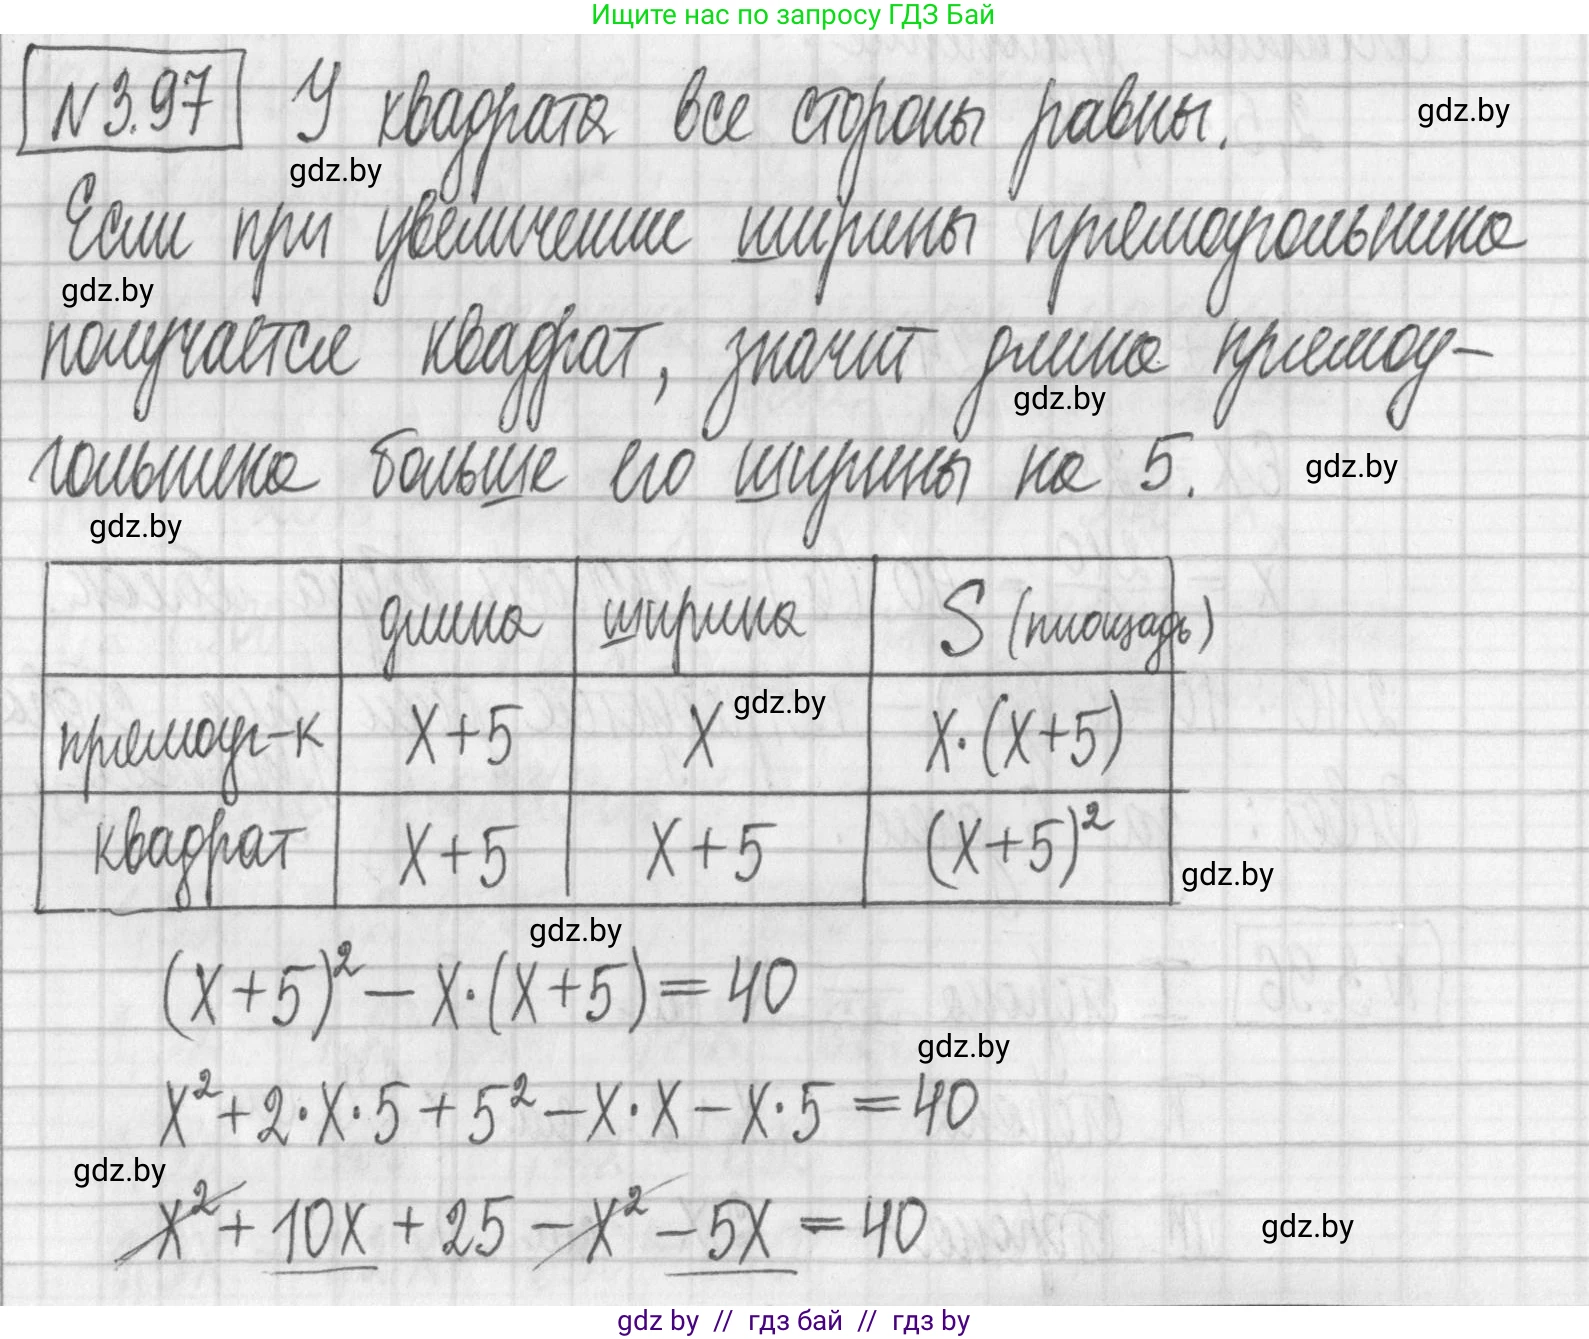 Ищите нас по запросу ГДЗ Бай
N 3.97 У квадрата все стороны равны. gdz.by
gdz.by
Если при увеличении ширины прямоугольника
gdz.by
получается квадрат, значит длина прямоу-
gdz.by
гольника больше его ширины на 5. gdz.by
gdz.by
длина ширина S (площадь)
прямоуг-к x+5 x gdz.by x·(x+5)
квадрат x+5 x+5 (x+5)² gdz.by
gdz.by
(x+5)² - x·(x+5) = 40
gdz.by
x² + 2·x·5 + 5² - x·x - x·5 = 40
gdz.by
x² + 10x + 25 - x² - 5x = 40 gdz.by
gdz by // гдз бай // гдз by